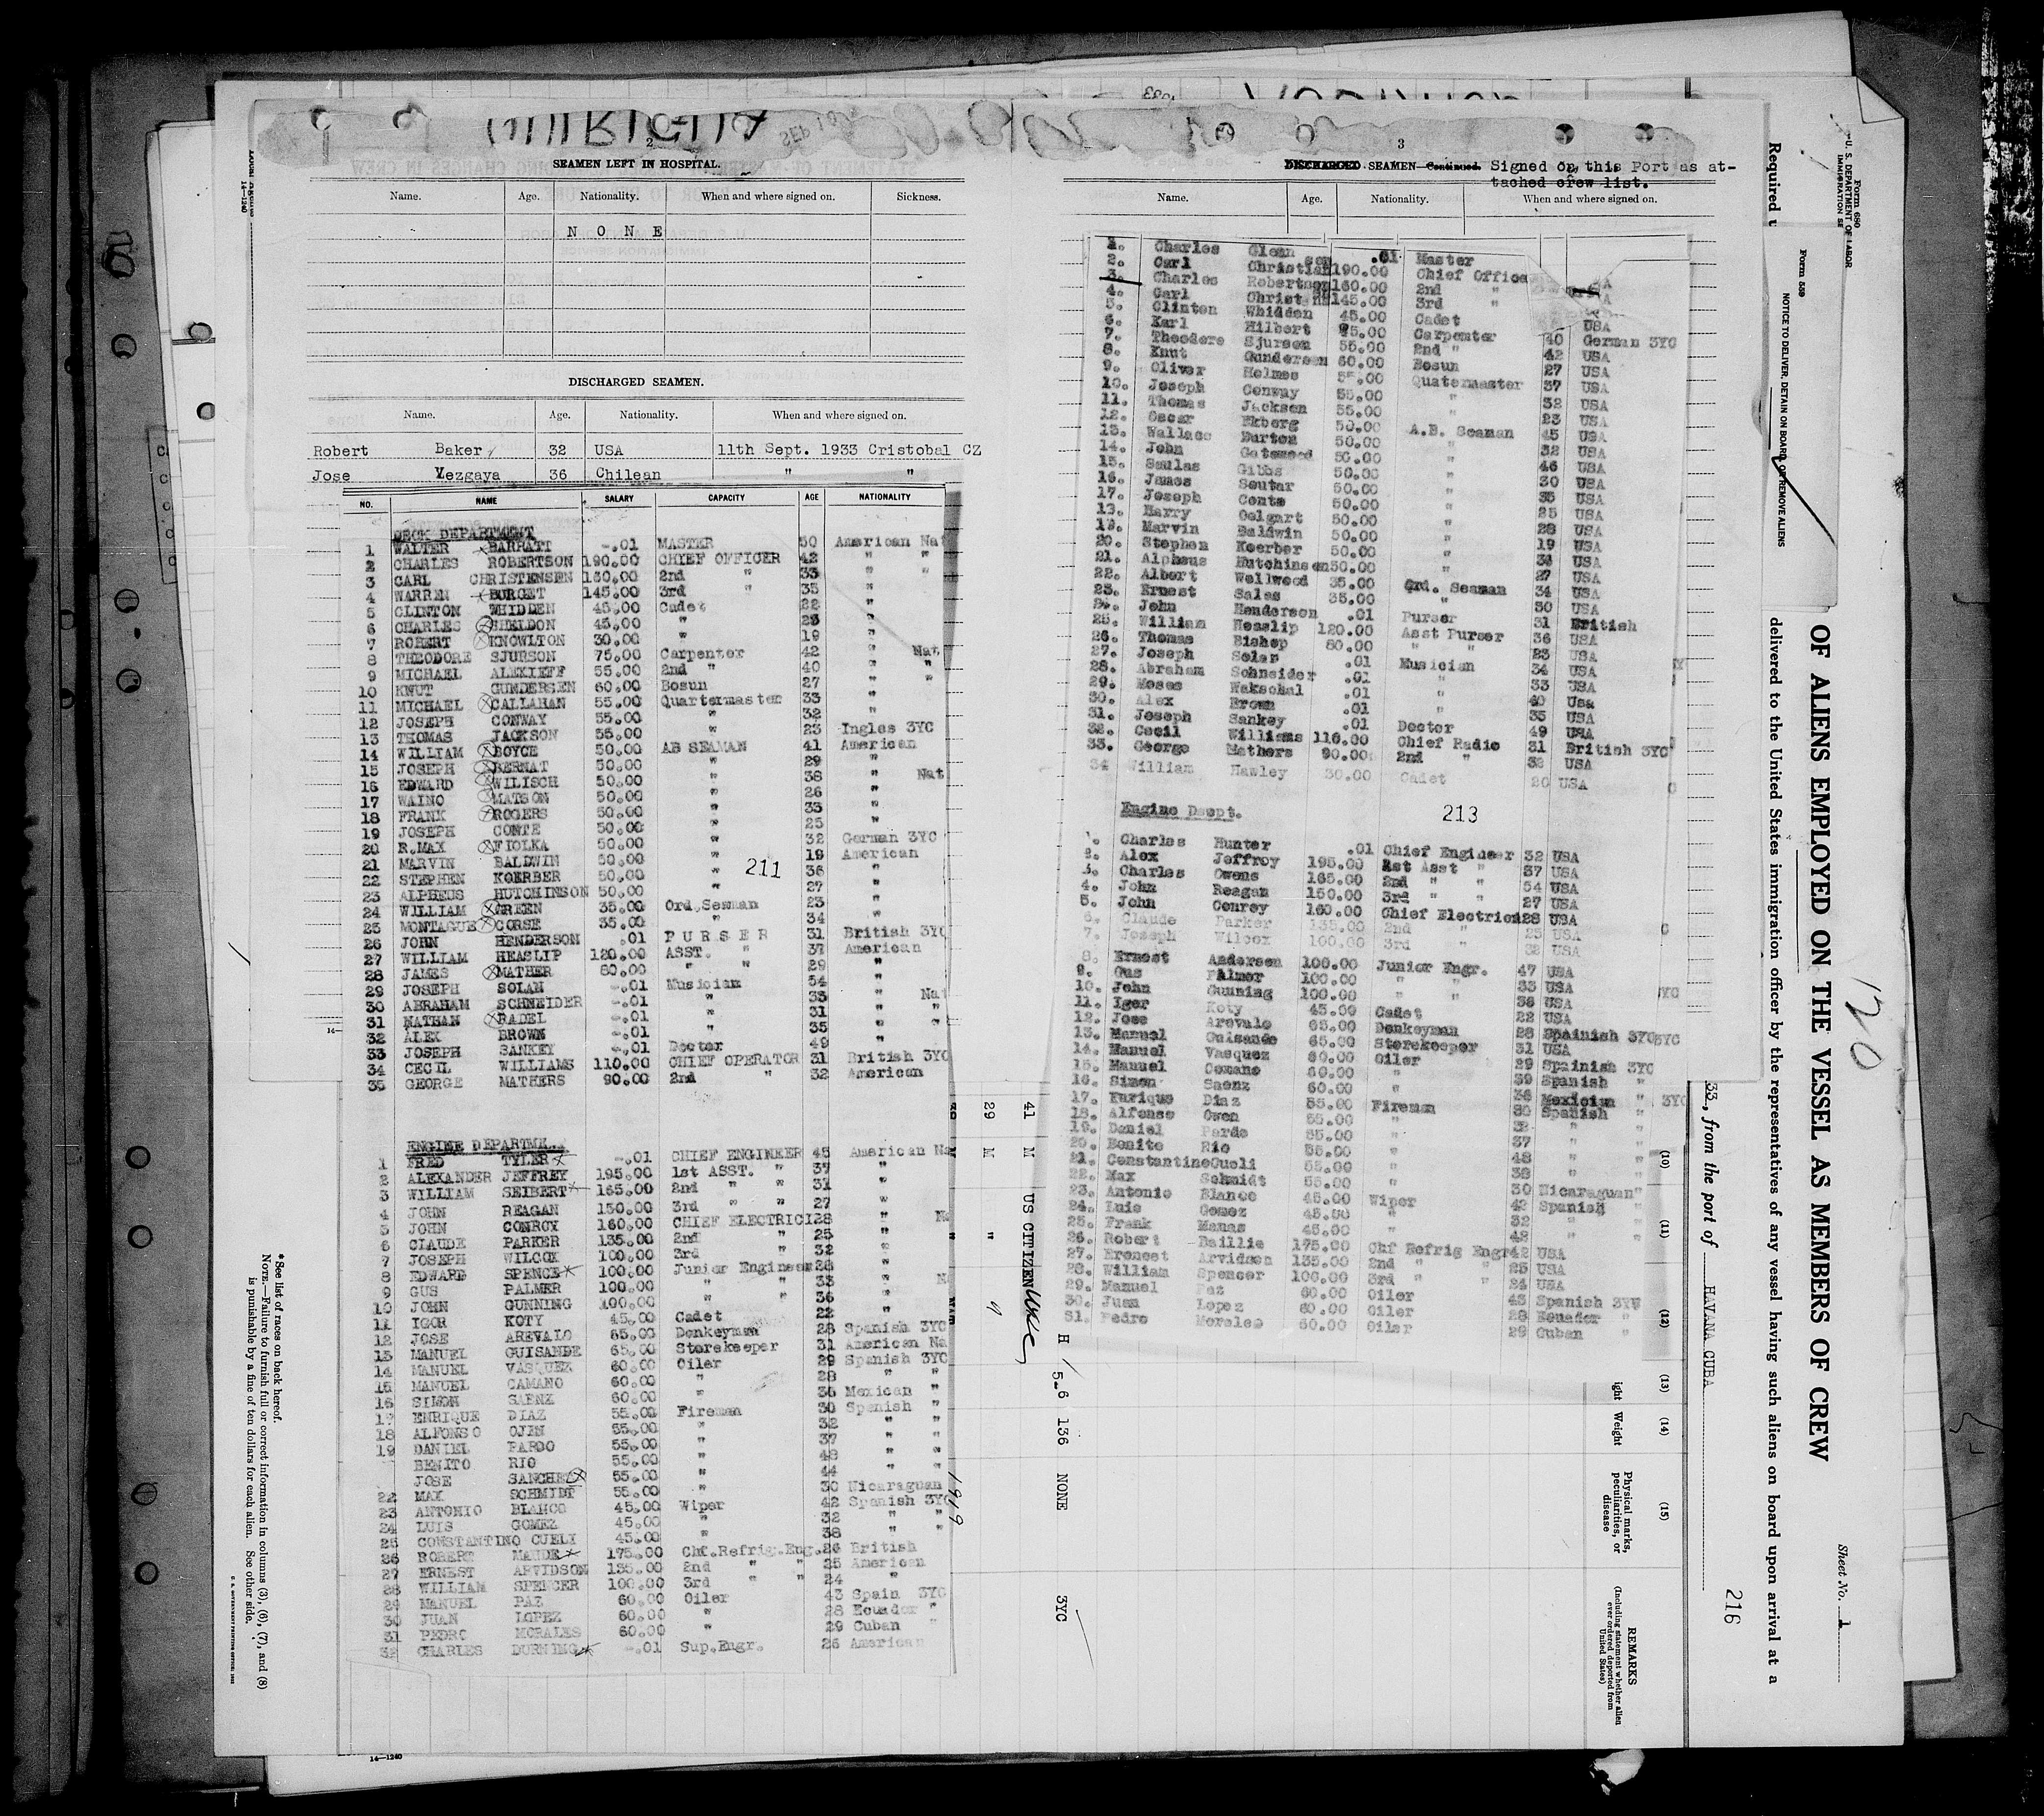 2
SEAMEN LEFT IN HOSPITAL.
Name. Age. Nationality. When and where signed on. Sickness.
N O N E
DISCHARGED SEAMEN.
Name. Age. Nationality. When and where signed on.
Robert Baker 32 USA 11th Sept. 1933 Cristobal CZ
Jose Vezgaya 36 Chilean " "
NO. NAME SALARY CAPACITY AGE NATIONALITY
DECK DEPARTMENT
1 WALTER BARRATT -.01 MASTER 50 American Nat
2 CHARLES ROBERTSON 190.00 CHIEF OFFICER 42 " "
3 CARL CHRISTENSEN 160.00 2nd " 33 " "
4 WARREN BURGET 145.00 3rd " 35 "
5 CLINTON WHIDDEN 45.00 Cadet 22 "
6 CHARLES SHELDON 45.00 " 23 "
7 ROBERT KNOWLTON 30.00 " 19 "
8 THEODORE SJURSON 75.00 Carpenter 42 " Nat
9 MICHAEL ALEXIEFF 55.00 2nd " 40 " "
10 KNUT GUNDERSEN 60.00 Bosun 27 " "
11 MICHAEL CALLAHAN 55.00 Quartermaster 33 "
12 JOSEPH CONWAY 55.00 " 32 "
13 THOMAS JACKSON 55.00 " 23 Ingles 3YC
14 WILLIAM BOYCE 50.00 AB SEAMAN 41 American
15 JOSEPH BERNAT 50.00 " 29 "
16 EDWARD WILISCH 50.00 " 38 " Nat
17 WAINO MATSON 50.00 " 26 "
18 FRANK ROGERS 50.00 " 33 "
19 JOSEPH CONTE 50.00 " 25 "
20 R.MAX FIOLKA 50.00 " 32 German 3YC
21 MARVIN BALDWIN 50.00 " 19 American
22 STEPHEN KOERBER 50.00 " 36 "
211
23 ALPHEUS HUTCHINSON 50.00 " 27 "
24 WILLIAM GREEN 35.00 Ord.Seaman 23 "
25 MONTAGUE CORSE 35.00 " 34 "
26 JOHN HENDERSON .01 P U R S E R 31 British 3YC
27 WILLIAM HEASLIP 120.00 ASST. " 37 American
28 JAMES MATHER 80.00 " " 29 "
29 JOSEPH SOLAN -.01 Musician 54 "
30 ABRAHAM SCHNEIDER -.01 " 33 " Nat
31 NATHAN RADEL -.01 " 31 " "
32 ALEX BROWN -.01 " 35 " "
33 JOSEPH SANKEY -.01 Doctor 49 "
34 CECIL WILLIAMS 110.00 CHIEF OPERATOR 31 British 3YC
35 GEORGE MATHERS 90.00 2nd " 32 American
ENGINE DEPARTME
1 FRED TYLER -.01 CHIEF ENGINEER 45 American Na
2 ALEXANDER JEFFREY 195.00 1st ASST. " 37 "
3 WILLIAM SEIBERT 165.00 2nd " " 31 "
4 JOHN REAGAN 150.00 3rd " " 27 "
5 JOHN CONROY 160.00 CHIEF ELECTRICI 28 "
6 CLAUDE PARKER 135.00 2nd " 25 "
7 JOSEPH WILCOX 100.00 3rd " 32 "
8 EDWARD SPENCE 100.00 Junior Engineer 28 "
9 GUS PALMER 100.00 " " 33 "
10 JOHN GUNNING 100.00 " " 36 "
11 IGOR KOTY 45.00 Cadet 22 "
12 JOSE AREVALO 65.00 Donkeyman 28 Spanish 3YC
13 MANUEL GUISANDE 65.00 Storekeeper 31 American Na
14 MANUEL VASQUEZ 60.00 Oiler 29 Spanish 3YC
15 MANUEL CAMANO 60.00 " 28 " "
16 SIMON SAENZ 60.00 " 36 Mexican "
17 ENRIQUE DIAZ 55.00 Fireman 30 Spanish "
18 ALFONSO OJEN 55.00 " 32 " "
19 DANIEL PARDO 55.00 " 37 " "
BENITO RIO 55.00 " 48 " "
JOSE SANCHEZ 55.00 " 44 " "
22 MAX SCHMIDT 55.00 " 30 Nicaraguan
23 ANTONIO BLANCO 45.00 Wiper 42 Spanish 3YC
24 LUIS GOMEZ 45.00 " 32 " "
25 CONSTANTINO CUELI 45.00 " 38 " "
26 ROBERT MAUDE 175.00 Chf.Refrig.Eng. 26 British
27 ERNEST ARVIDSON 135.00 2nd " " 25 American
28 WILLIAM SPENCER 100.00 3rd " " 24 "
29 MANUEL PAZ 60.00 Oiler 43 Spain 3YC
30 JUAN LOPEZ 60.00 " 28 Ecuador "
31 PEDRO MORALES 60.00 " 29 Cuban "
32 CHARLES DURNING -.01 Sup.Engr. 26 American
14—1240
3
DISCHARGED SEAMEN—Continued. Signed on this Port as at-
tached crew list.
Name. Age. Nationality. When and where signed on.
1. Charles Glenn .01 Master
2. Carl Christiansen 190.00 Chief Office
3. Charles Robertson 160.00 2nd "
4. Carl Christ 145.00 3rd "
5. Clinton Whidden 45.00 Cadet USA
6. Karl Hilbert 75.00 Carpenter 40 German 3YC
7. Theodore Sjursen 55.00 2nd " 42 USA
8. Knut Gundersen 60.00 Bosun 27 USA
9. Oliver Holmes 55.00 Quatermaster 37 USA
10. Joseph Conway 55.00 " 32 USA
11. Thomas Jackson 55.00 " 23 USA
12. Oscar Ekberg 50.00 A.B. Seaman 45 USA
13. Wallace Burton 50.00 " 32 USA
14. John Gatewood 50.00 " 46 USA
15. Saulas Gibbs 50.00 " 30 USA
16. James Soutar 50.00 " 35 USA
17. Joseph Conte 50.00 " 25 USA
18. Harry Colgart 50.00 " 28 USA
19. Marvin Baldwin 50.00 " 19 USA
20. Stephen Koerber 50.00 " 36 USA
21. Alpheus Hutchinson 50.00 " 27 USA
22. Albert Wellwood 35.00 Ord. Seaman 34 USA
23. Ernest Sales 35.00 " 30 USA
24. John Henderson .01 Purser 31 British
25. William Heaslip 120.00 Asst Purser 36 USA
26. Thomas Bishop 80.00 " " 23 USA
27. Joseph Solan .01 Musician 34 USA
28. Abraham Schneider .01 " 33 USA
29. Moses Wakschal .01 " 40 Usa
30. Alex Brown .01 " 35 USA
31. Joseph Sankey .01 Doctor 49 USA
32. Cecil Williams 110.00 Chief Radio 31 British 3YC
33. George Mathers 90.00 2nd " 32 USA
34 William Hawley 30.00 Cadet 20 USA
213
Engine Deept.
1. Charles Hunter .01 Chief Engineer 32 USA
2. Alex Jeffroy 195.00 1st Asst " 37 USA
3. Charles Owens 165.00 2nd " " 54 USA
4. John Reagan 150.00 3rd " " 27 USA
5. John Conroy 160.00 Chief Electrician 28 USA
6. Claude Parker 135.00 2nd " 25 USA
7. Joseph Wilcox 100.00 3rd " 32 USA
8. Ernest Andersen 100.00 Junior Engr. 47 USA
9. Gus Palmer 100.00 " " 33 USA
10. John Gunning 100.00 " " 36 USA
11. Iger Koty 45.00 Cadet 22 USA
12. Jose Arevalo 65.00 Donkeyman 28 Spainish 3YC
13. Manuel Guisande 65.00 Storekeeper 31 USA
14. Manuel Vasquez 60.00 Oiler 29 Spainish 3YC
15. Manuel Comano 60.00 " 39 Spanish "
16. Simon Saenz 60.00 " 36 Mexician "
17. Enrique Diaz 55.00 Fireman 30 Spanish "
18. Alfonso Owen 55.00 " 32 " "
19. Daniel Pardo 55.00 " 37 " "
20. Benito Rio 55.00 " 48 " "
21. Constantine Cueli 55.00 " 38 " "
22. Max Schmidt 55.00 " 30 Nicaraguan"
23. Antonio Blanco 45.00 Wiper 42 Spanish "
24. Luis Gomez 45.00 " 32 " "
25. Frank Manas 45.00 " 42 " "
26. Robert Baillie 175.00 Chf Refrig Engr 42 USA
27. Erenest Arvidson 135.00 2nd " " 25 USA
28. William Spencer 100.00 3rd " " 24 USA
29. Manuel Paz 60.00 Oiler 43 Spanish 3YC
30. Juan Lopez 60.00 Oiler 28 Ecuador "
31. Pedro Morales 60.00 Oiler 29 Cuban "
29 M " "
41 M US CITIZEN
H 5-6 136 NONE 3YC
1919
(10) (11) (12) (13) (14) (15)
ight Weight Physical marks, peculiarities, or disease
REMARKS
(Including statement whether alien ever ordered deported from United States)
33, from the port of HAVANA CUBA
216
120
Form 680
U. S. DEPARTMENT OF LABOR
IMMIGRATION SE
Form 559
NOTICE TO DELIVER, DETAIN ON BOARD, OR REMOVE ALIENS
Required u
OF ALIENS EMPLOYED ON THE VESSEL AS MEMBERS OF CREW
delivered to the United States immigration officer by the representatives of any vessel having such aliens on board upon arrival at a
Sheet No. 1
* See list of races on back hereof.
NOTE.—Failure to furnish full or correct information in columns (3), (6), (7), and (8)
is punishable by a fine of ten dollars for each alien. See other side.
14—1240